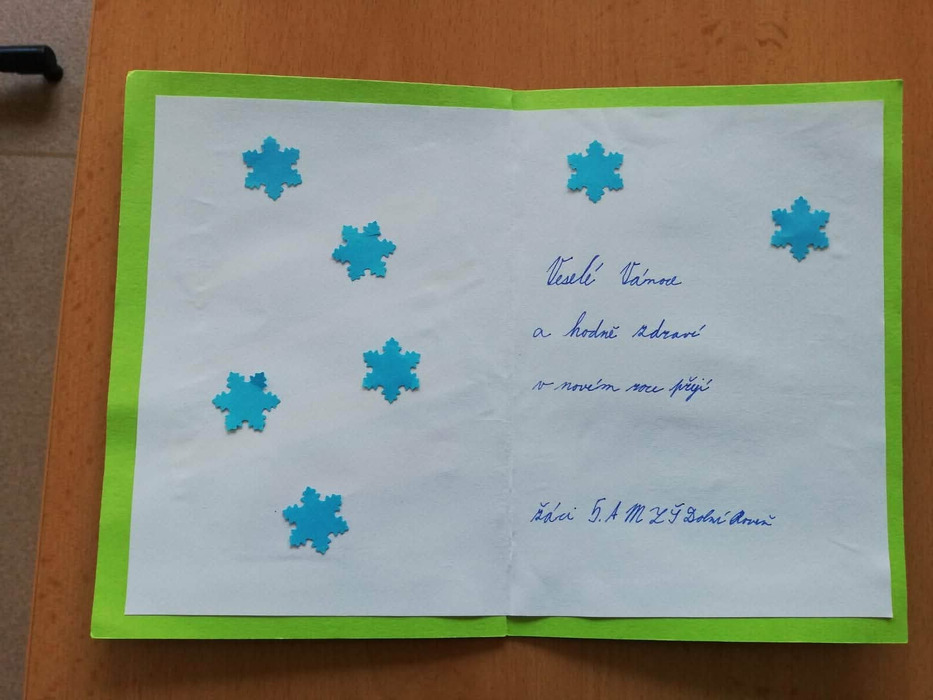 Veselé Vánoce
a hodně zdraví
v novém roce přejí
žáci 5. A MZŠ Dolní Roveň